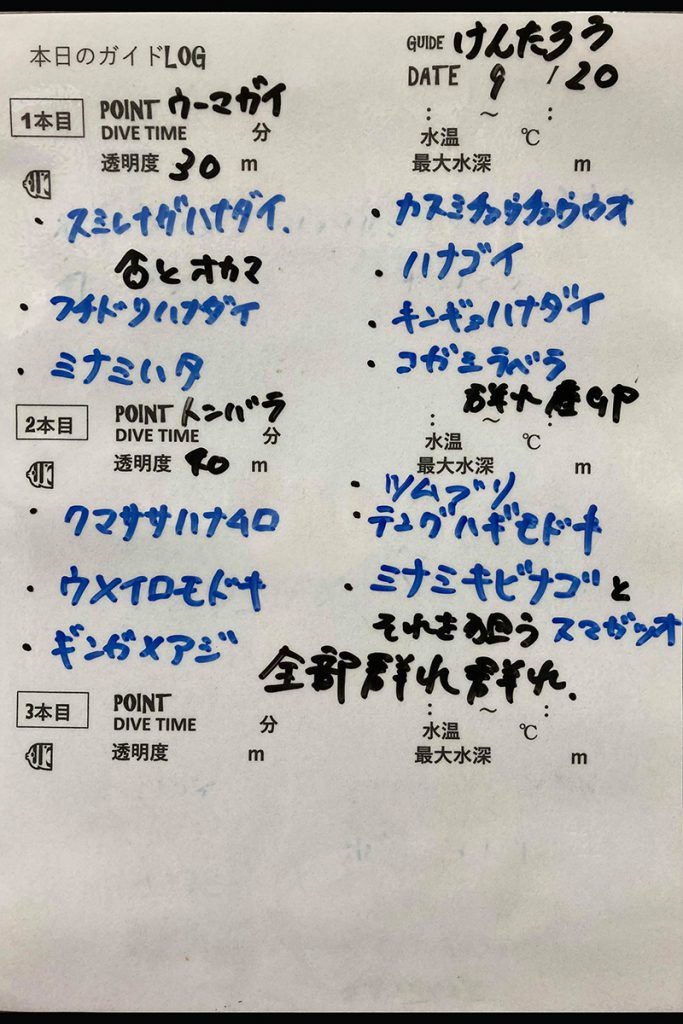 本日のガイドLOG
GUIDE けんたろう
DATE 9 / 20
1本目 POINT ウーマガイ
: ～ :
DIVE TIME 分
水温 ℃
透明度 30 m
最大水深 m
・スミレナガハナダイ.
合とオカマ
・フチドリハナダイ
・ミナミハタ
・カスミチョウチョウウオ
・ハナゴイ
・キンギョハナダイ
・コガシラベラ
群れ産GP
2本目 POINT トンバラ
: ～ :
DIVE TIME 分
水温 ℃
透明度 40 m
最大水深 m
・クマササハナムロ
・ウメイロモドキ
・ギンガメアジ
・ツムブリ
・テングハギモドキ
・ミナミキビナゴと
それを狙う スマガツオ
全部群れ群れ.
3本目 POINT
: ～ :
DIVE TIME 分
水温 ℃
透明度 m
最大水深 m